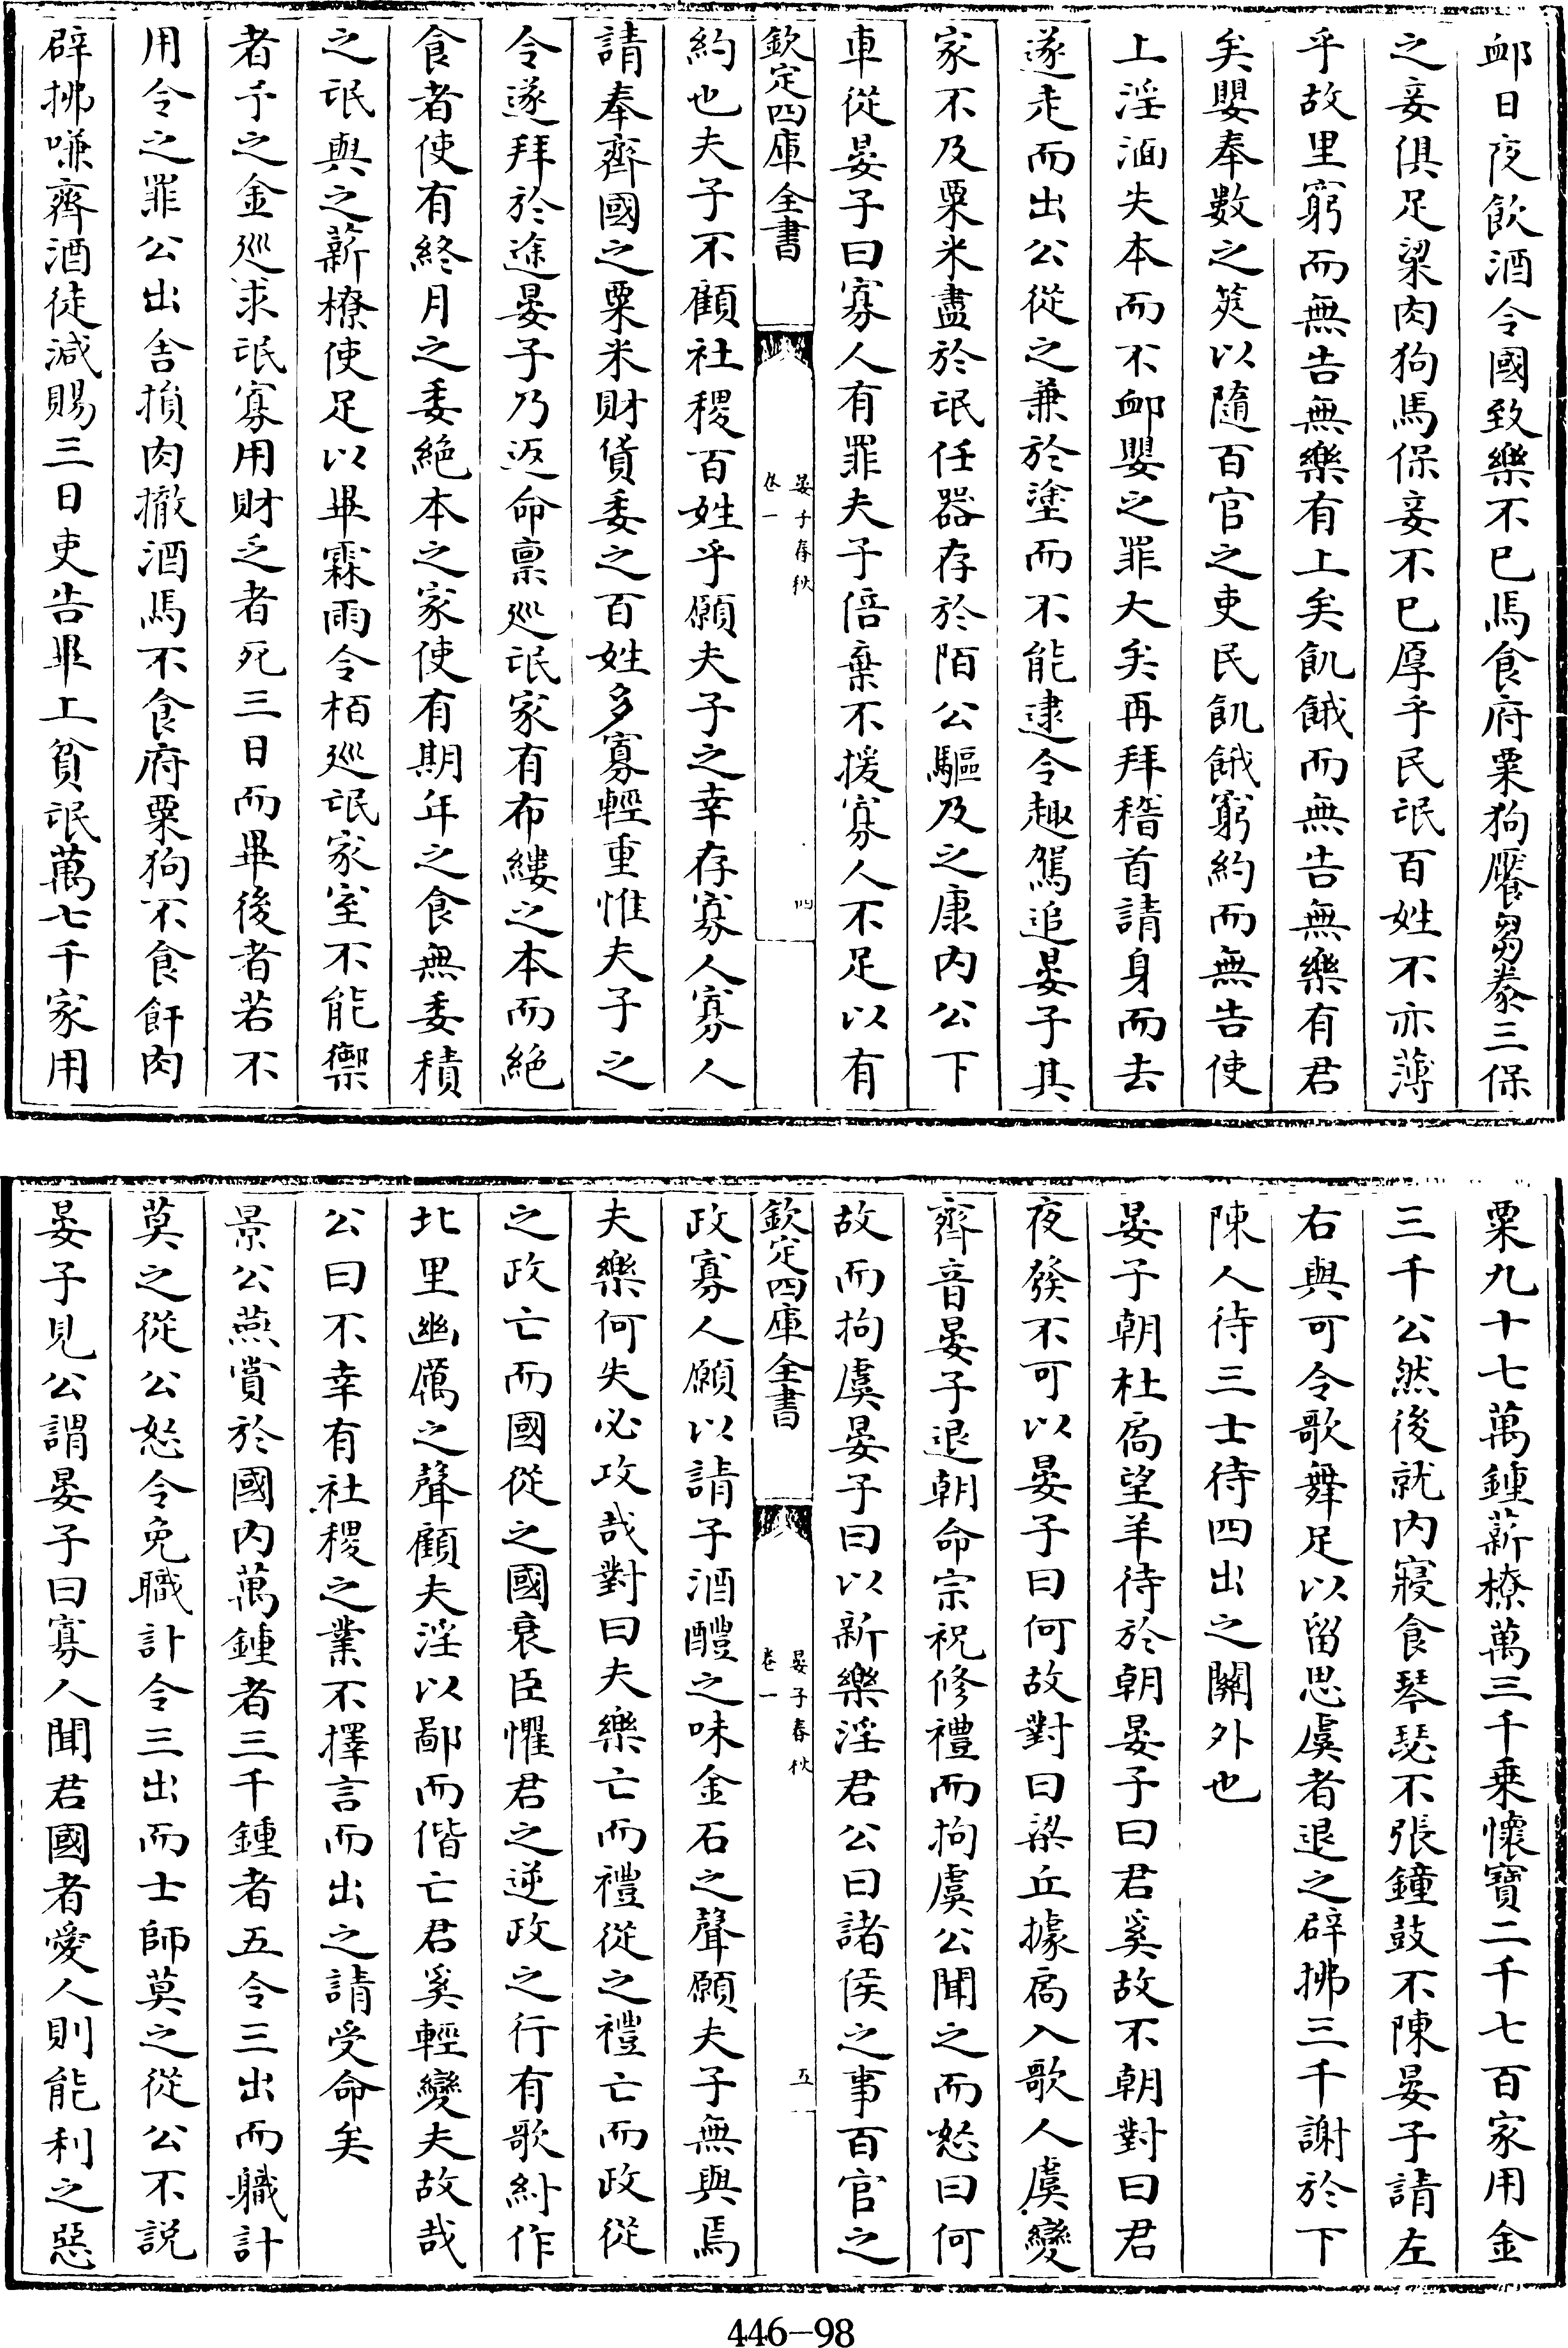 䘏日夜飲酒令國致樂不已馬食府粟狗饜芻豢三保
之妾俱足梁肉狗馬保妾不已厚乎民氓百姓不亦薄
乎故里窮而無告無樂有上矣飢餓而無告無樂有君
矣嬰奉數之筴以隨百官之吏民飢餓窮約而無告使
上淫湎失本而不䘏嬰之罪大矣再拜稽首請身而去
遂走而出公從之兼於塗而不能逮令趣駕追晏子其
家不及粟米盡於氓任器存於陌公驅及之康内公下
車從晏子曰寡人有罪夫子倍棄不援寡人不足以有
欽定四庫全書
晏子春秋
卷一
四
約也夫子不顧社稷百姓乎願夫子之幸存寡人寡人
請奉齊國之粟米財貨委之百姓多寡輕重惟夫子之
令遂拜於途晏子乃返命稟巡氓家有布縷之本而絶
食者使有終月之委絶本之家使有期年之食無委積
之氓與之薪橑使足以畢霖雨令栢巡氓家室不能禦
者予之金巡求氓寡用財乏者死三日而畢後者若不
用令之罪公出舍損肉撤酒馬不食府粟狗不食飦肉
辟拂嗛齊酒徒減賜三日吏告畢上貧氓萬七千家用
粟九十七萬鍾薪橑萬三千乗懷寶二千七百家用金
三千公然後就内寢食琴瑟不張鐘鼓不陳晏子請左
右與可令歌舞足以留思虞者退之辟拂三千謝於下
陳人待三士待四出之關外也
晏子朝杜扃望羊待於朝晏子曰君奚故不朝對曰君
夜發不可以晏子曰何故對曰梁丘據扃入歌人虞變
齊音晏子退朝命宗祝修禮而拘虞公聞之而怒曰何
故而拘虞晏子曰以新樂淫君公曰諸侯之事百官之
欽定四庫全書
晏子春秋
卷一
五
政寡人願以請子酒醴之味金石之聲願夫子無與焉
夫樂何失必攻哉對曰夫樂亡而禮從之禮亡而政從
之政亡而國從之國衰臣懼君之逆政之行有歌紂作
北里幽厲之聲顧夫淫以鄙而偕亡君奚輕變夫故哉
公曰不幸有社稷之業不擇言而出之請受命矣
景公燕賞於國内萬鍾者三千鍾者五令三出而職計
莫之從公怒令免職計令三出而士師莫之從公不説
晏子見公謂晏子曰寡人聞君國者愛人則能利之惡
446-98